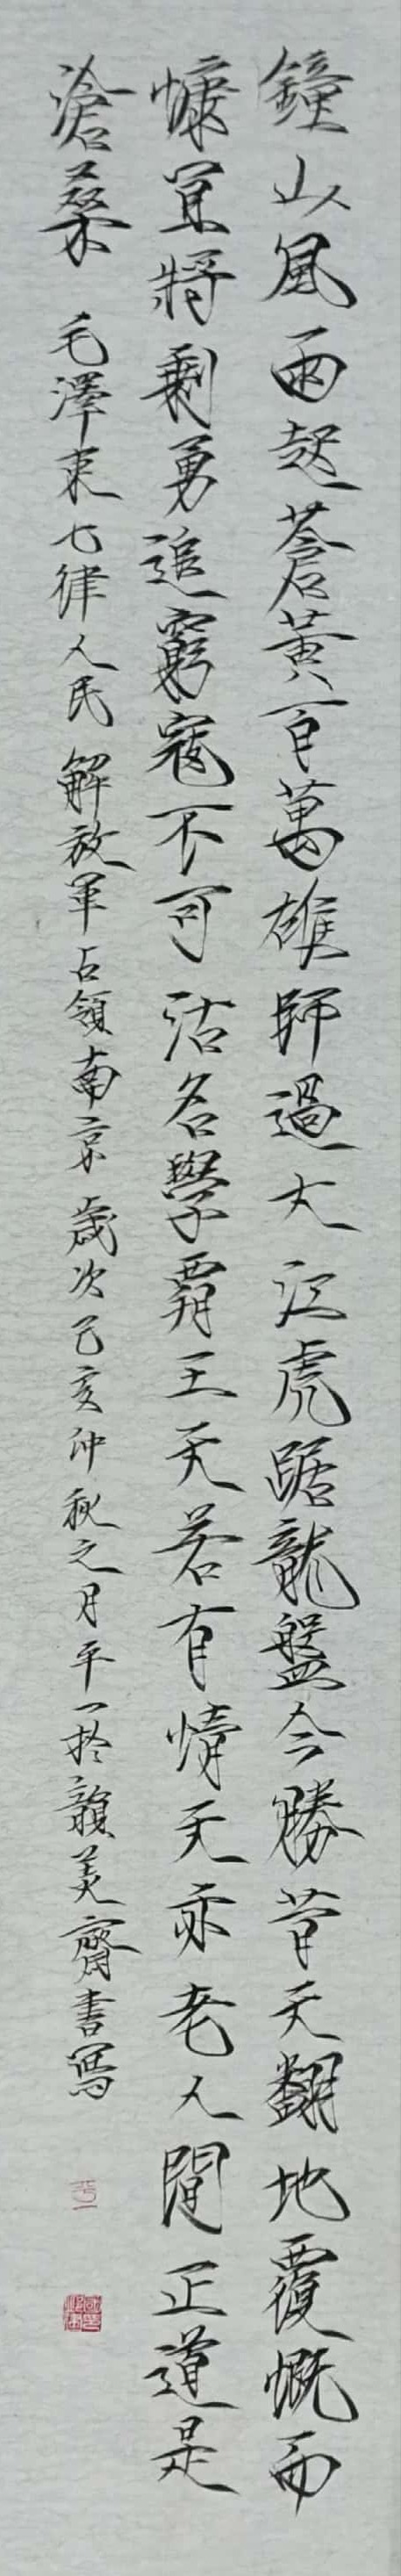 鐘山風雨起蒼黃百萬雄師過大江虎踞龍盤今勝昔天翻地覆慨而
慷宜將剩勇追窮寇不可沽名學霸王天若有情天亦老人間正道是
滄桑 毛澤東七律人民解放軍占領南京 歲次己亥仲秋之月平一於韻美齋書寫
平一